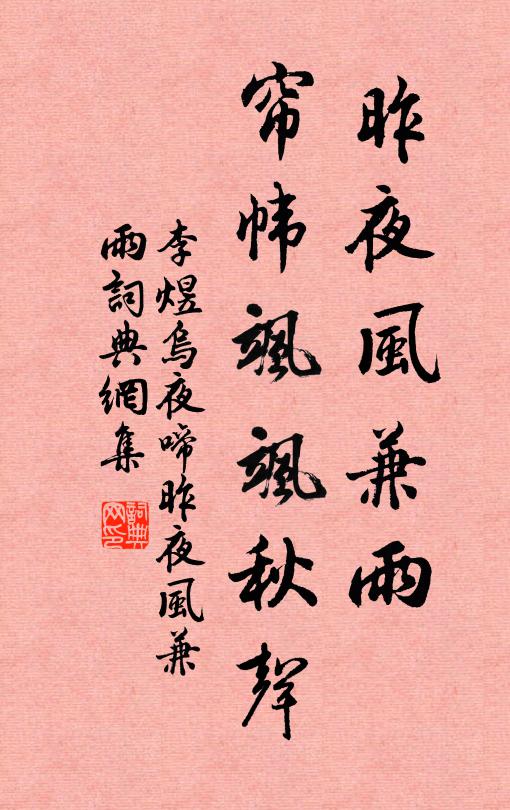 昨夜風兼雨
帘幃颯颯秋聲
李煜烏夜啼昨夜風兼
雨詞典網集
詞典
网印